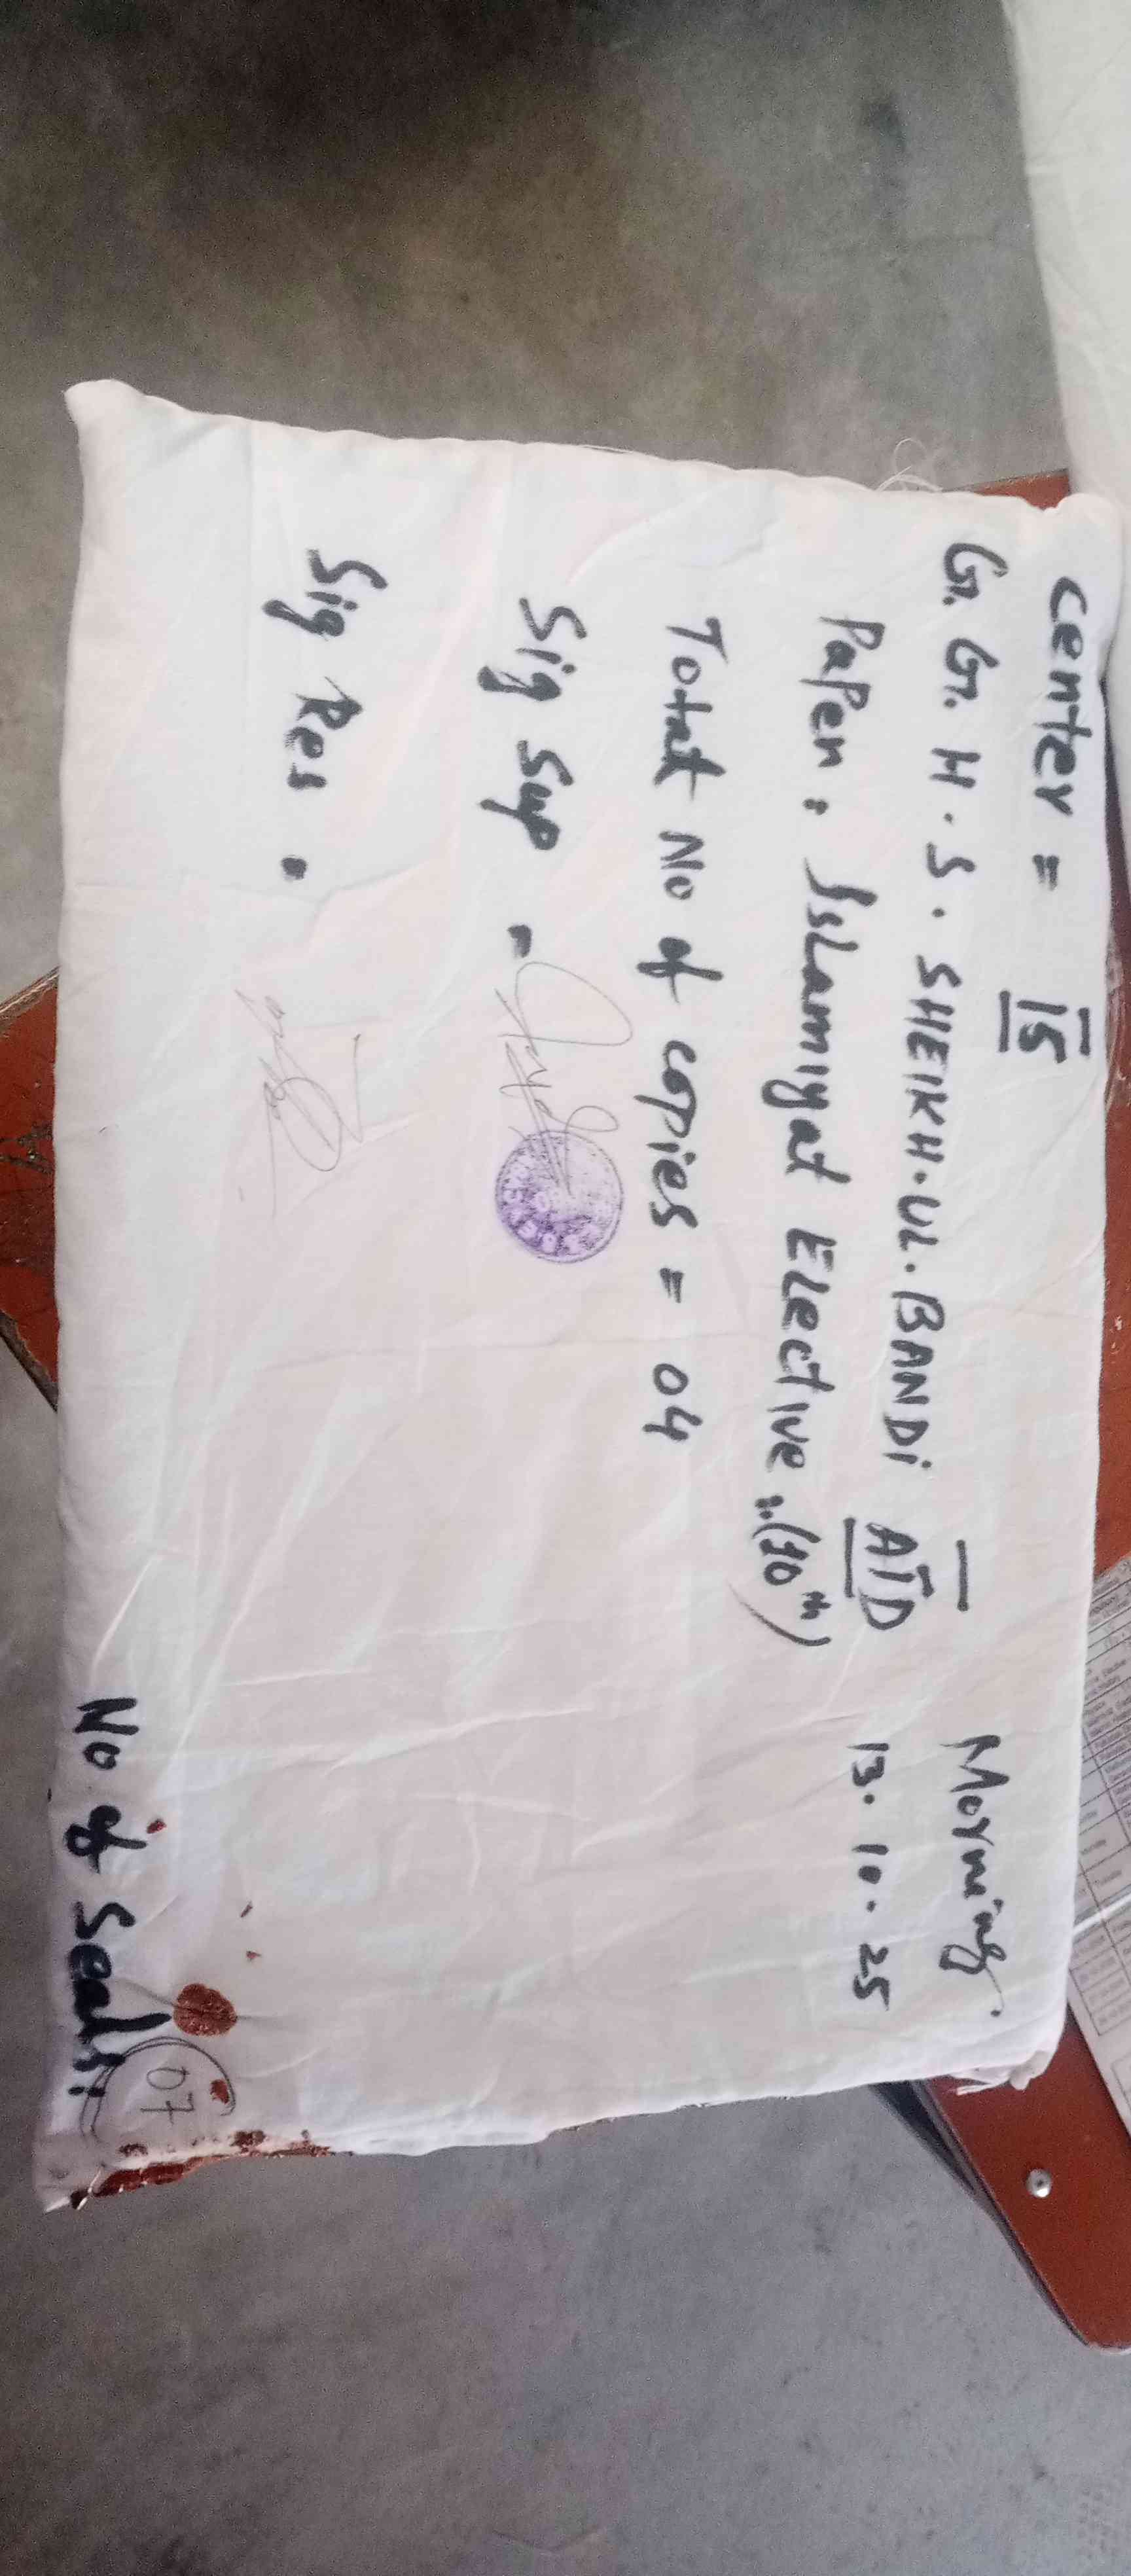 Center = 15
Morning.
G. G. H. S. SHEIKH.UL.BANDi ATD
13.10.25
PaPer: IsLamiyat ELective (10th)
Total No of copies = 04
Sig Sup =
Sig Res =
No of Seals: 07